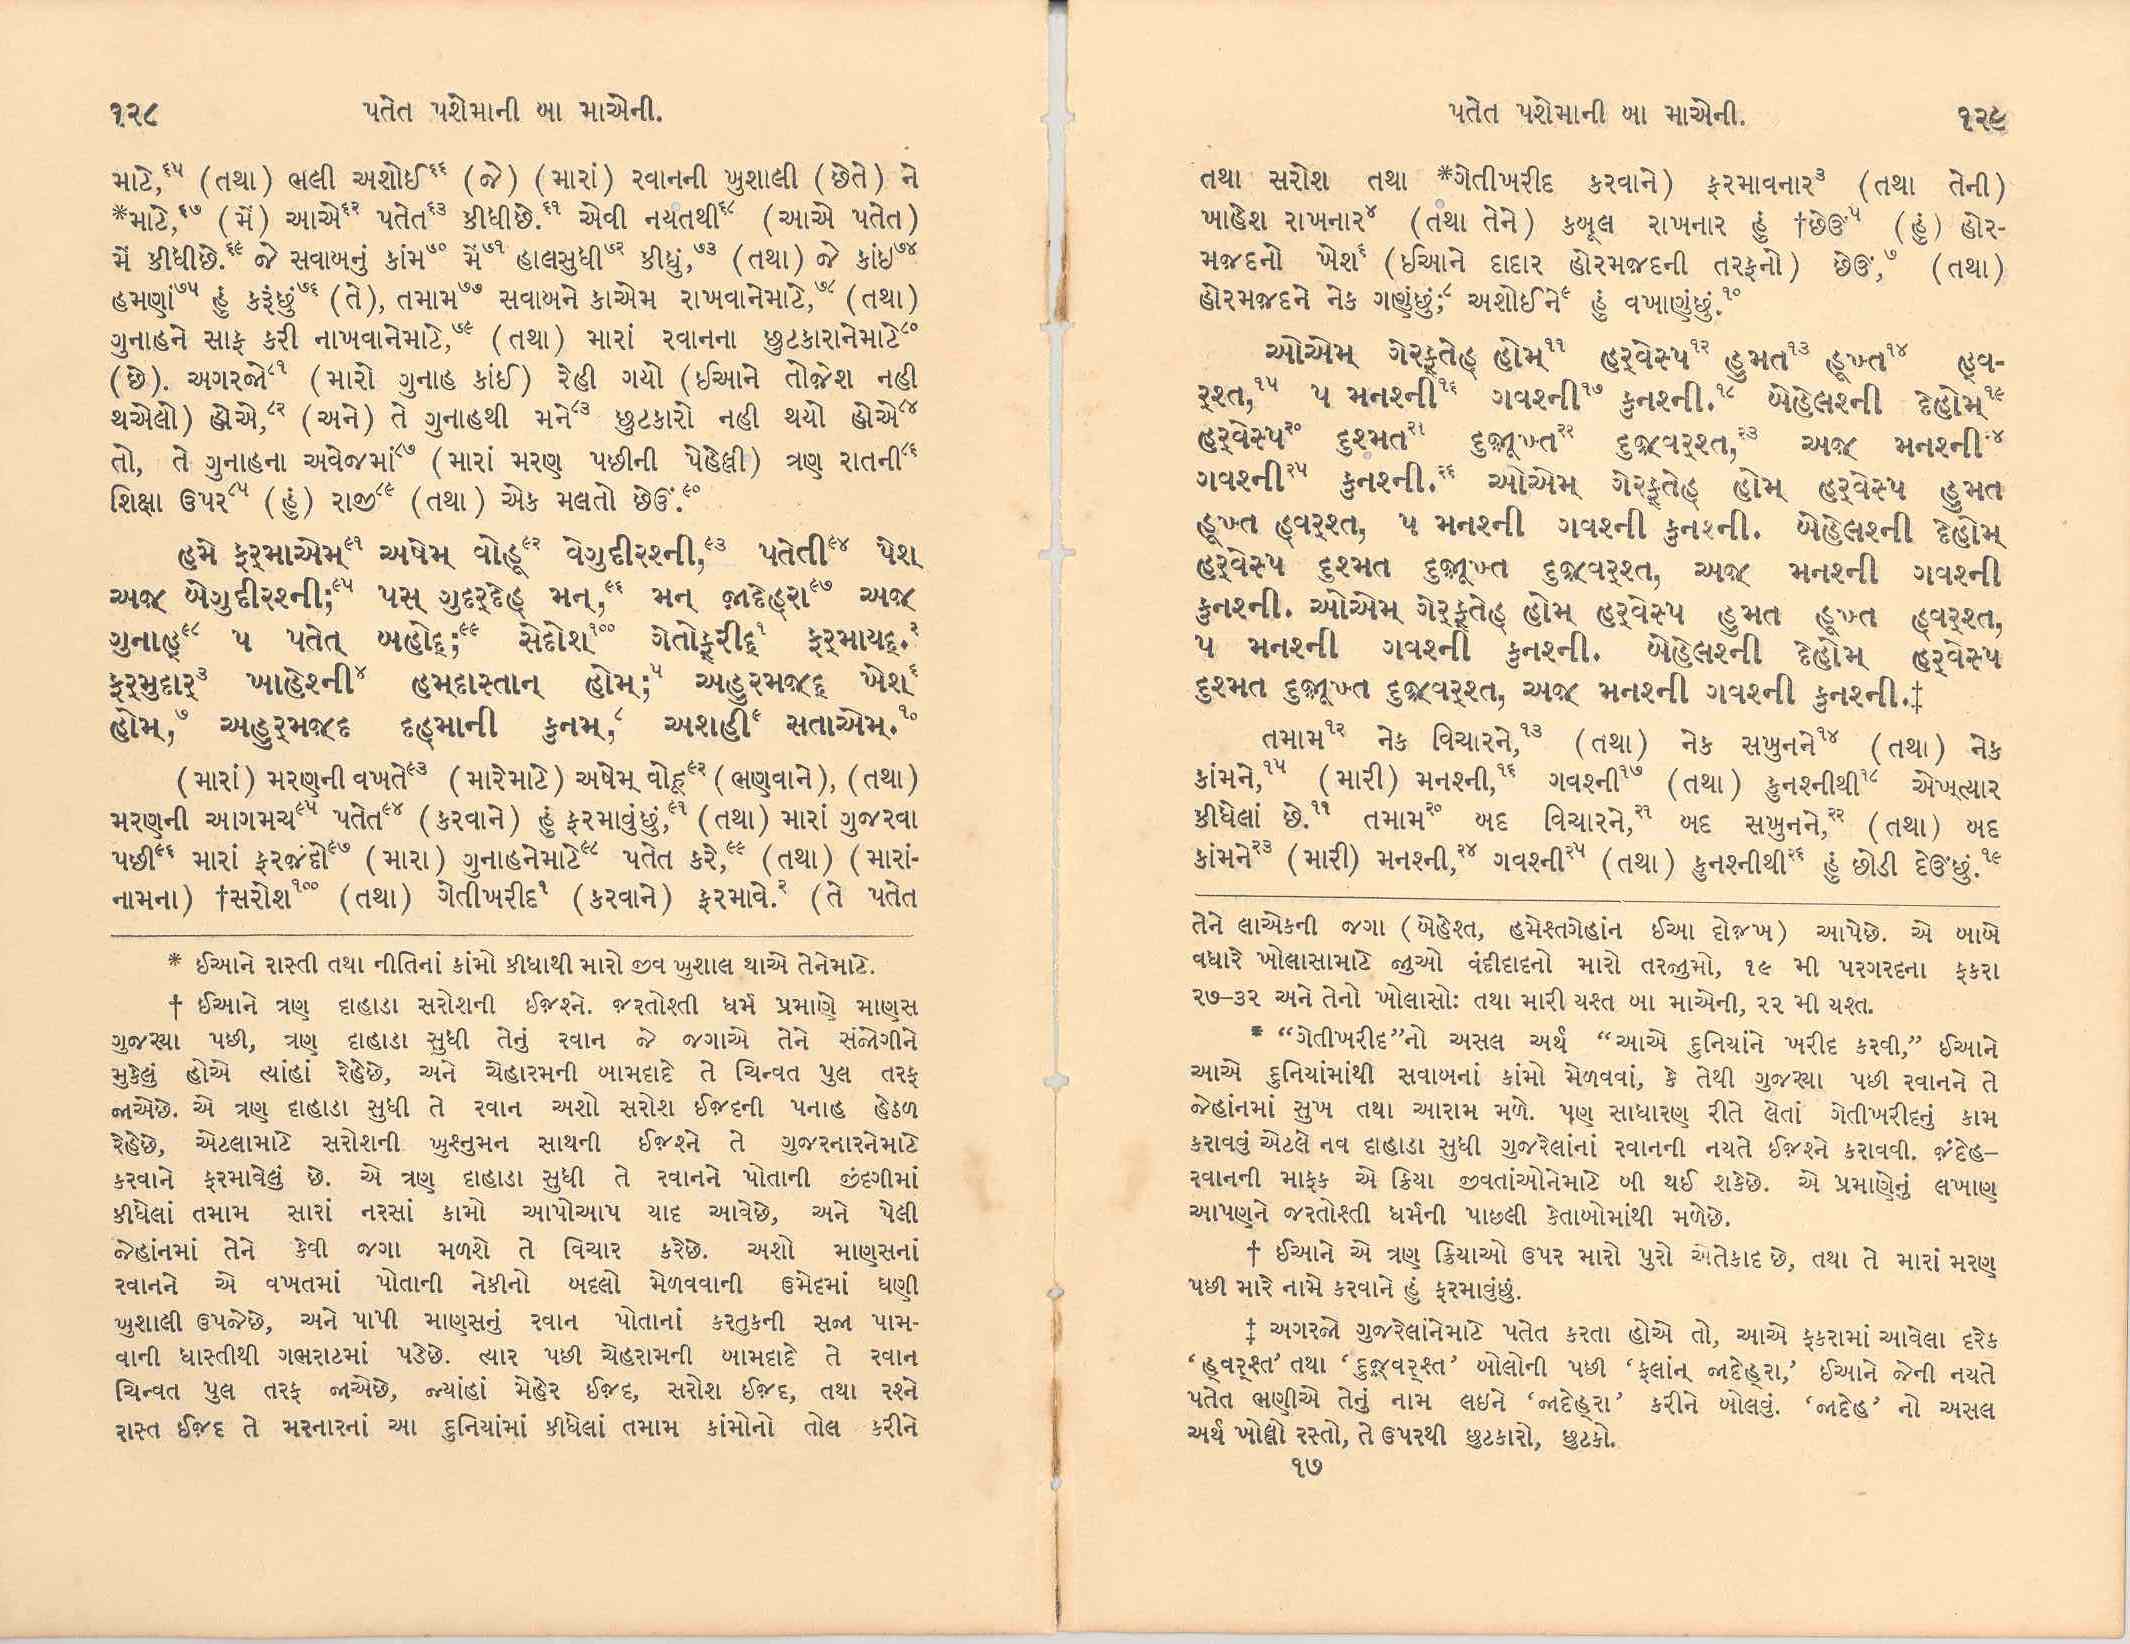 ૧૨૮ પતેત પશેમાની બા માએની.
માટે,૬૫ (તથા) ભલી અશોઈ૬૬ (જે) (મારાં) રવાનની ખુશાલી (છેતે) ને
*માટે,૬૭ (મેં) આએ૬૨ પતેત૬૩ કીધીછે.૬૧ એવી નયતથી૬૮ (આએ પતેત)
મેં કીધીછે.૬૯ જે સવાબનું કાંમ૭૦ મેં૭૧ હાલસુધી૭૨ કીધું,૭૩ (તથા) જે કાંઇ૭૪
હમણાં૭૫ હું કરૂંછું૭૬ (તે), તમામ૭૭ સવાબને કાએમ રાખવાનેમાટે,૭૮ (તથા)
ગુનાહને સાફ કરી નાખવાનેમાટે,૭૯ (તથા) મારાં રવાનના છુટકારાનેમાટે૮૦
(છે). અગરજો૮૧ (મારો ગુનાહ કાંઈ) રેહી ગયો (ઈઆને તોજ઼ેશ નહી
થએલો) હોએ,૮૨ (અને) તે ગુનાહથી મને૮૩ છુટકારો નહી થયો હોએ૮૪
તો, તે ગુનાહના અવેજમાં૮૭ (મારાં મરણ પછીની પેહેલી) ત્રણ રાતની૮૬
શિક્ષા ઉપર૮૫ (હું) રાજી૮૯ (તથા) એક મલતો છેઉં.૯૦
હમે ફર્‌માએમ્‌૯૧ અષેમ્‌ વોહૂ૯૨ વેગુદીરશ્ની,૯૩ પતેતી૯૪ પેશ્‌
અજ઼્‌ બેગુદીરશ્ની;૯૫ પસ્‌ ગુદર્‌દેહ્‌ મન્‌,૯૬ મન્‌ જાદેહ્‌રા૯૭ અજ઼્‌
ગુનાહ્‌૯૮ પ પતેત્‌ બહોદ્‌;૯૯ સેદોશ્‌૧૦૦ ગેતોફ્રીદ્‌૧ ફર્‌માયદ્‌.૨
ફર્‌મુદાર્‌૩ ખાહેશ્ની૪ હમ્‌દાસ્તાન્‌ હોમ્‌;૫ અહુરમજ઼્‌દ્‌ ખેશ્‌૬
હોમ્‌,૭ અહુર્‌મજ઼્‌દ દહ્‌માની કુનમ્‌,૮ અશહી૯ સતાએમ્‌.૧૦
(મારાં) મરણની વખતે૯૩ (મારેમાટે) અષેમ્‌ વોહૂ૯૨ (ભણવાને), (તથા)
મરણની આગમચ૯૫ પતેત૯૪ (કરવાને) હું ફરમાવુંછું,૯૧ (તથા) મારાં ગુજરવા
પછી૯૬ મારાં ફરજ઼ંદો૯૭ (મારા) ગુનાહનેમાટે૯૮ પતેત કરે,૯૯ (તથા) (મારાં-
નામના) †સરોશ૧૦૦ (તથા) ગેતીખરીદ૧ (કરવાને) ફરમાવે.૨ (તે પતેત
* ઈઆને રાસ્તી તથા નીતિનાં કાંમો કીધાથી મારો જીવ ખુશાલ થાએ તેનેમાટે.
† ઈઆને ત્રણ દાહાડા સરોશની ઈજ઼શ્ને. જ઼રતોશ્તી ધર્મ પ્રમાણે માણસ
ગુજર્‍યા પછી, ત્રણ દાહાડા સુધી તેનું રવાન જે જગાએ તેને સંજોગીને
મુકેલું હોએ ત્યાંહાં રેહેછે, અને ચેહારમની બામદાદે તે ચિન્વત પુલ તરફ
જાએછે. એ ત્રણ દાહાડા સુધી તે રવાન અશો સરોશ ઈજ઼દની પનાહ હેઠળ
રેહેછે, એટલામાટે સરોશની ખુશ્નુમન સાથની ઈજ઼શ્ને તે ગુજરનારનેમાટે
કરવાને ફરમાવેલું છે. એ ત્રણ દાહાડા સુધી તે રવાનને પોતાની જીંદગીમાં
કીધેલાં તમામ સારાં નરસાં કામો આપોઆપ યાદ આવેછે, અને પેલી
જેહાંનમાં તેને કેવી જગા મળશે તે વિચાર કરેછે. અશો માણસનાં
રવાનને એ વખતમાં પોતાની નેકીનો બદલો મેળવવાની ઉમેદમાં ઘણી
ખુશાલી ઉપજેછે, અને પાપી માણસનું રવાન પોતાનાં કરતુકની સજા પામ-
વાની ધાસ્તીથી ગભરાટમાં પડેછે. ત્યાર પછી ચેહરામની બામદાદે તે રવાન
ચિન્વત પુલ તરફ જાએછે, જ્યાંહાં મેહેર ઈજ઼દ, સરોશ ઈજ઼દ, તથા રશ્ને
રાસ્ત ઈજ઼દ તે મરનારનાં આ દુનિયાંમાં કીધેલાં તમામ કાંમોનો તોલ કરીને
પતેત પશેમાની બા માએની. ૧૨૯
તથા સરોશ તથા *ગેતીખરીદ કરવાને) ફરમાવનાર૩ (તથા તેની)
ખાહેશ રાખનાર૪ (તથા તેને) કબૂલ રાખનાર હું †છેઉં૫ (હું) હોર-
મજ઼દનો ખેશ૬ (ઈઆને દાદાર હોરમજ઼દની તરફનો) છેઉં,૭ (તથા)
હોરમજ઼દને નેક ગણુંછું;૮ અશોઈને૯ હું વખાણુંછું.૧૦
ઓએમ્‌ ગેરફ્તેહ્‌ હોમ્‌૧૧ હર્‌વેસ્પ૧૨ હુમત૧૩ હૂખ્ત૧૪ હ્વ-
ર્‌શ્ત,૧૫ પ મનશ્ની૧૬ ગવશ્ની૧૭ કુનશ્ની.૧૮ બેહેલશ્ની દેહોમ્‌૧૯
હર્‌વેસ્પ૨૦ દુશ્મત૨૧ દુજ઼ૂખ્ત૨૨ દુજ઼્‌વર્‌શ્ત,૨૩ અજ઼્‌ મનશ્ની૨૪
ગવશ્ની૨૫ કુનશ્ની.૨૬ ઓએમ્‌ ગેરફ્તેહ્‌ હોમ્‌ હર્‌વેસ્પ હુમત
હૂખ્ત હ્વર્‌શ્ત, પ મનશ્ની ગવશ્ની કુનશ્ની. બેહેલશ્ની દેહોમ્‌
હર્‌વેસ્પ દુશ્મત દુજ઼ૂખ્ત દુજ઼્‌વર્‌શ્ત, અજ઼્‌ મનશ્ની ગવશ્ની
કુનશ્ની. ઓએમ્‌ ગેર્‌ફ્તેહ્‌ હોમ્‌ હર્‌વેસ્પ હુમત હૂખ્ત હ્વર્‌શ્ત,
પ મનશ્ની ગવશ્ની કુનશ્ની. બેહેલશ્ની દેહોમ્‌ હર્‌વેસ્પ
દુશ્મત દુજ઼ૂખ્ત દુજ઼્‌વર્‌શ્ત, અજ઼્‌ મનશ્ની ગવશ્ની કુનશ્ની.‡
તમામ૧૨ નેક વિચારને,૧૩ (તથા) નેક સખુનને૧૪ (તથા) નેક
કાંમને,૧૫ (મારી) મનશ્ની,૧૬ ગવશ્ની૧૭ (તથા) કુનશ્નીથી૧૮ એખ્ત્યાર
કીધેલાં છે.૧૧ તમામ૨૦ બદ વિચારને,૨૧ બદ સખુનને,૨૨ (તથા) બદ
કાંમને૨૩ (મારી) મનશ્ની,૨૪ ગવશ્ની૨૫ (તથા) કુનશ્નીથી૨૬ હું છોડી દેઉંછું.૧૯
તેને લાએકની જગા (બેહેશ્ત, હમેસ્તગેહાંન ઈઆ દોજ઼ખ) આપેછે. એ બાબે
વધારે ખોલાસામાટે જુઓ વંદીદાદનો મારો તરજુમો, ૧૯ મી પરગરદના ફકરા
૨૭–૩૨ અને તેનો ખોલાસોઃ તથા મારી યશ્ત બા માએની, ૨૨ મી યશ્ત.
* “ગેતીખરીદ”નો અસલ અર્થ “આએ દુનિયાંને ખરીદ કરવી,” ઈઆને
આએ દુનિયાંમાંથી સવાબનાં કાંમો મેળવવાં, કે તેથી ગુજર્‍યા પછી રવાનને તે
જેહાંનમાં સુખ તથા આરામ મળે. પણ સાધારણ રીતે લેતાં ગેતીખરીદનું કામ
કરાવવું એટલે નવ દાહાડા સુધી ગુજરેલાંનાં રવાનની નયતે ઈજ઼શ્ને કરાવવી. જ઼ંદેહ–
રવાનની માફક એ ક્રિયા જીવતાંઓનેમાટે બી થઈ શકેછે. એ પ્રમાણેનું લખાણ
આપણને જરતોશ્તી ધર્મની પાછલી કેતાબોમાંથી મળેછે.
† ઈઆને એ ત્રણ ક્રિયાઓ ઉપર મારો પુરો એતેકાદ છે, તથા તે મારાં મરણ
પછી મારે નામે કરવાને હું ફરમાવુંછું.
‡ અગરજો ગુજરેલાંનેમાટે પતેત કરતા હોએ તો, આએ ફકરામાં આવેલા દરેક
‘હ્વર્‌શ્ત’ તથા ‘દુજ઼્‌વર્‌શ્ત’ બોલોની પછી ‘ફલાંન્‌ જાદેહ્‌રા,’ ઈઆને જેની નયતે
પતેત ભણીએ તેનું નામ લઇને ‘જાદેહ્‌રા’ કરીને બોલવું. ‘જાદેહ’ નો અસલ
અર્થ ખોલ્લો રસ્તો, તે ઉપરથી છુટકારો, છુટકો.
૧૭